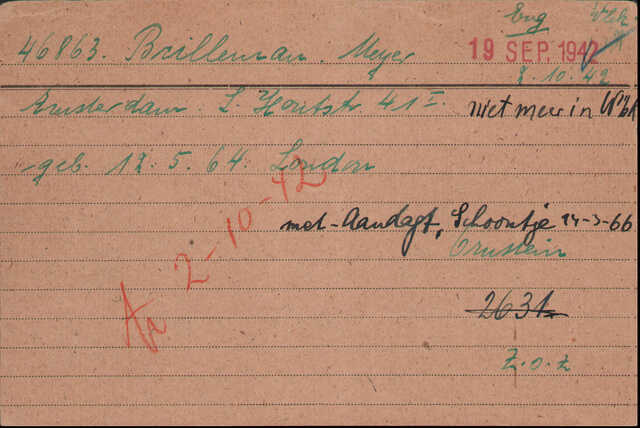 Eng
46863. Brilleman. Meyer
19 SEP. 1942
2.10.42
Amsterdam. L. Houtstr 41 I.
niet meer in
geb. 12.5.64. London
met Aandagt, Schoontje 14-3-66
Ornstein
Aa 2-10-42
2631
z.o.z